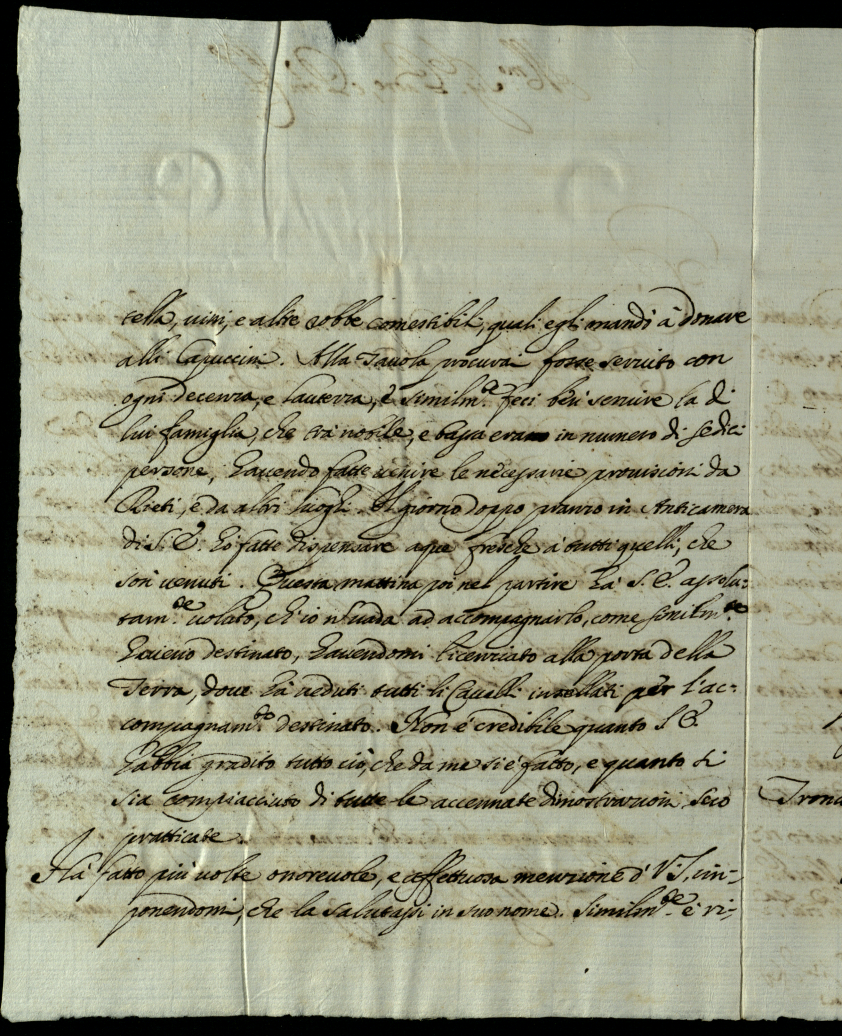 tella, vini, e altre robbe comestibili, quali egli mandò à donare
alli Capuccini. Alla Tavola procurai fosse servito con
ogni decenza, e lautezza, e similm.te feci ben servire la di
lui famiglia, che trà nobile, e bassa erano in numero di sedici
persone, havendo fatte venire le necessarie provisioni da
Rieti, e da altri luoghi. Il giorno doppo pranzo in Anticamera
di S. E. hò fatte dispensare aque fresche à tutti quelli, che
son venuti. Questa mattina poi nel partire hà S. E. assolu-
tam.te voluto, ch'io n vada ad accompagnarlo, come similm.te
havevo destinato, havendomi licenziato alla porta della
Terra, dove hà veduti tutti li Cavalli insellati per l'ac-
compagnam.to destinato. Non è credibile quanto S. E.
habbia gradito tutto ciò, che da me si è fatto, e quanto si
sia compiacciuto di tutte le accennate dimostrazioni seco
pratticate.
Hà fatto più volte onorevole, e affettuosa menzione d' V. S. im-
ponendomi, che la salutassi in suo nome. Similm.te è ri-
Tron